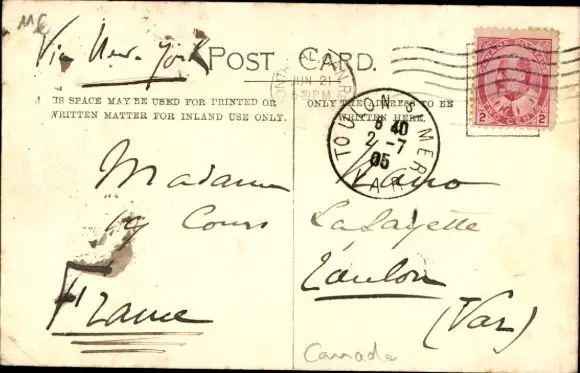 Via New-York
POST CARD.
JUN 21
THIS SPACE MAY BE USED FOR PRINTED OR
WRITTEN MATTER FOR INLAND USE ONLY.
ONLY THE ADDRESS TO BE
WRITTEN HERE.
2 2
TOULON S MER
8 40
2 -7
05
VAR
Madame
Cours Lafayette
Toulon
France
(Var)
Canada